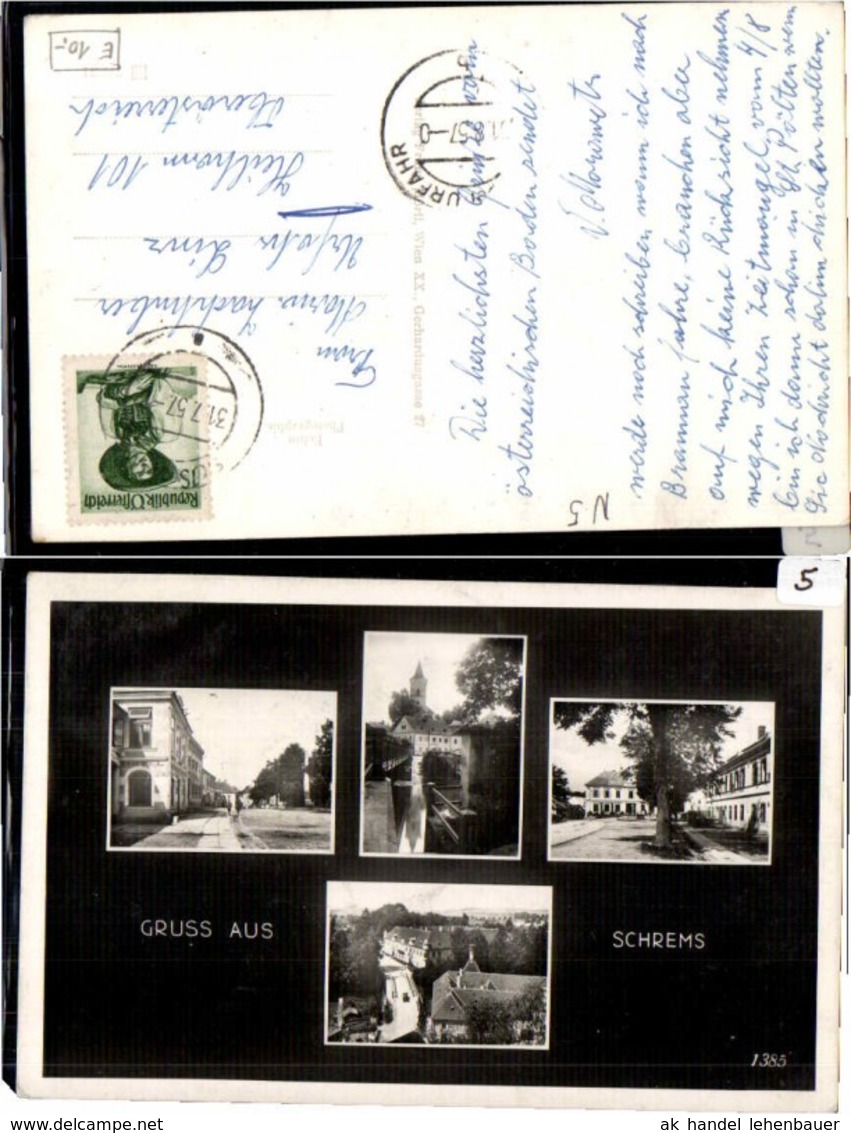 E 10,-
Die herzlichsten Grüße vom
österreichischen Boden sendet
V.
werde noch schreiben wann ich nach
Braunau fahre, brauchen aber
auf mich keine Rücksicht nehmen
wegen Ihren Zeitmangel, vom 4/8
bin ich dann schon in St Pölten wenn
Sie Nachricht dahin schicken wollten.
N 5
Frau
Maria
Urfahr Linz
Heilham 101
Oberösterreich
Echte
Photographie
Wien XX., Gerhardusgasse 27
URFAHR
31.7.57
Republik Österreich
5
GRUSS AUS
SCHREMS
1385
www.delcampe.net
ak handel lehenbauer